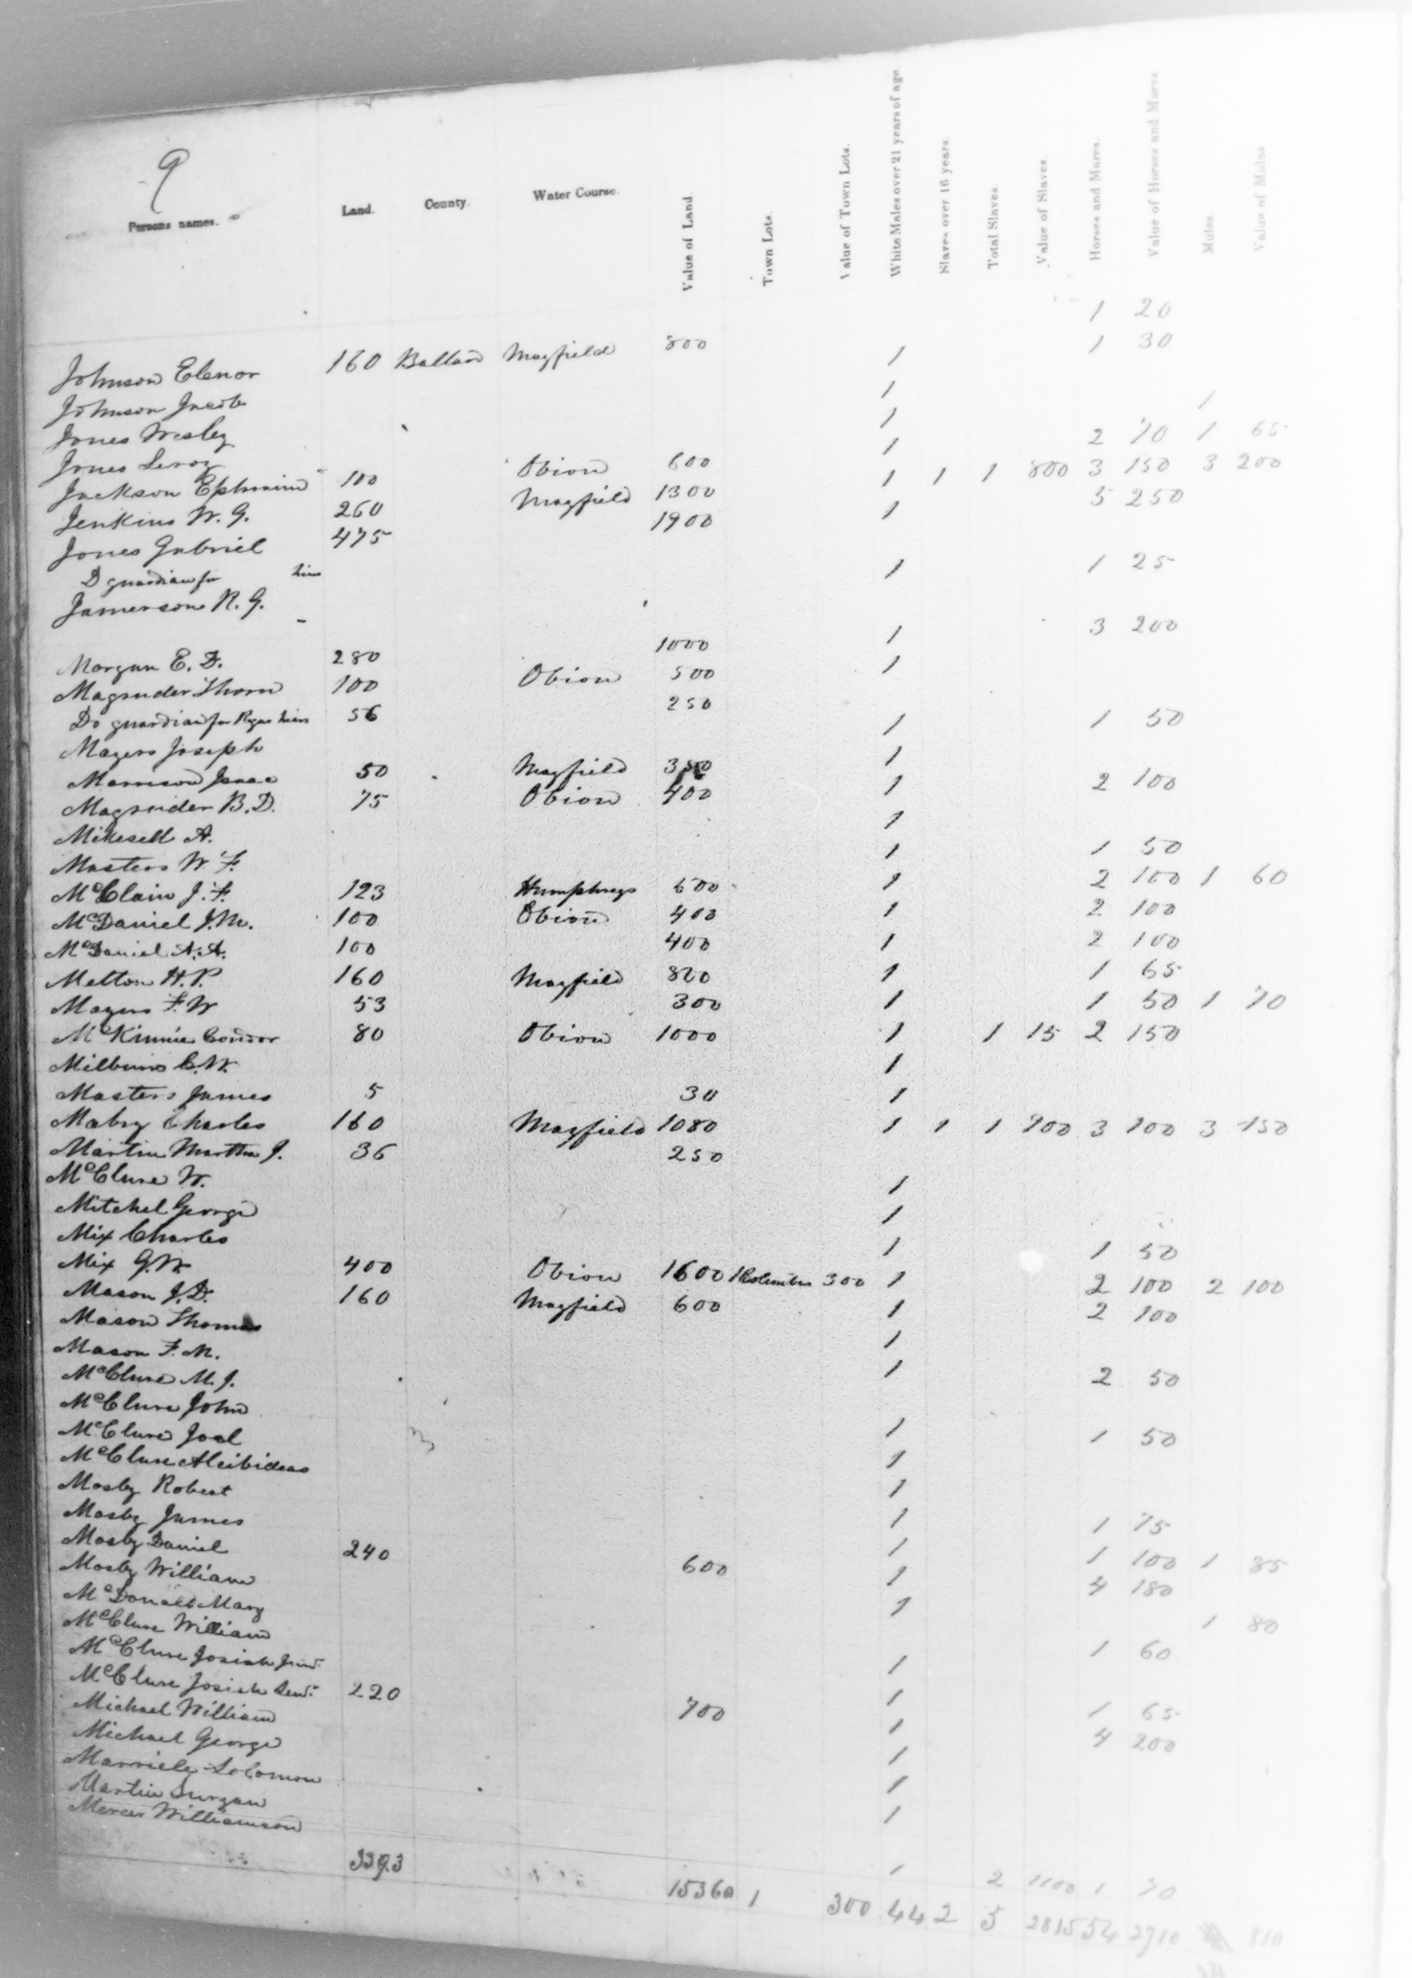 9
Persons names. Land. County. Water Course. Value of Land. Town Lots. Value of Town Lots. White Males over 21 years of age. Slaves over 16 years. Total Slaves. Value of Slaves. Horses and Mares. Value of Horses and Mares Mules Value of Mules
1 20
Johnson Elenor 160 Ballard Mayfield 800 1 1 30
Johnson Jacob 1
Jones Wesley 1 1
Jones Leroy 1 2 70 1 65
Jackson Ephraim 100 Obion 600 1 1 1 800 3 150 3 200
Jenkins W. G. 260 Mayfield 1300 1 5 250
Jones Gabriel 475 1900
Do guardian for heirs 1 1 25
Jamerson R. G.
Morgan E. D. 280 1000 1 3 200
Magruder Thom 100 Obion 500 1
Do guardian for heirs 56 250
Mayers Joseph 1 1 50
Marrison Isaac 50 Mayfield 350 1
Magruder B. D. 75 Obion 400 1 2 100
Mikesell A. 1
Masters W F. 1 1 50
McClain J. F. 123 Humphreys 600 1 2 100 1 60
McDaniel J. M. 100 Obion 400 1 2 100
McDaniel A. A. 100 400 1 2 100
Melton H. P. 160 Mayfield 800 1 1 65
Mayers F. W 53 300 1 1 50 1 70
McKinnie Condor 80 Obion 1000 1 1 15 2 150
Milburn C. W. 1
Masters James 5 30 1
Mabry Charles 160 Mayfield 1080 1 1 1 900 3 100 3 150
Martin Martha J. 36 250
McClure W. 1
Mitchel George 1
Mix Charles 1 1 50
Mix G. W. 400 Obion 1600 1 Columbus 300 1 2 100 2 100
Mason J. D. 160 Mayfield 600 1 2 100
Mason Thomas 1
Mason F. M. 1 2 50
McClure M. J.
McClure John 1 1 50
McClure Joal 1
McClure Alcibideas 1
Mosby Robert 1
Mosby James 1 1 75
Mosby Daniel 240 600 1 1 100 1 85
Mosby William 1 4 180
McDonald Mary 1 80
McClure William 1 1 60
McClure Josiah Jun.
McClure Josiah Sen. 220 700 1 1 65
Michael William 1 4 200
Michael George 1
Solomon 1
Martin 1
Mercer Williamson 1 2 1100 1 70
3393 15360 1 300 44 2 5 2815 54 2710 810